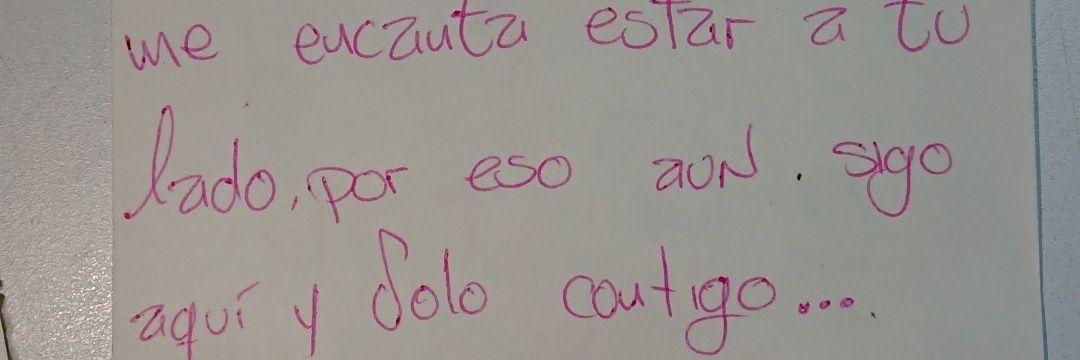 me encanta estar a tu
lado, por eso aun. sigo
aquí y solo contigo....